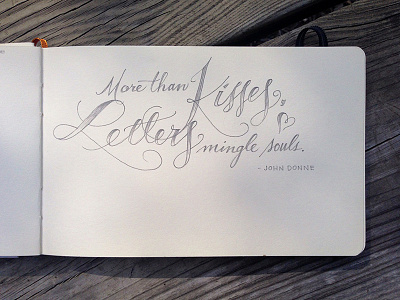 More than Kisses,
Letters
mingle souls.
- JOHN DONNE